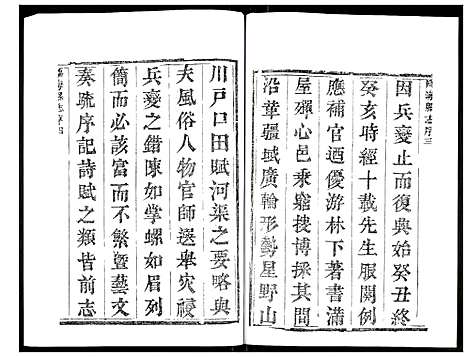 因兵變止而復興始癸丑終
癸亥時經十載先生服闋例
應補官迺優游林下著書滿
屋殫心邑乘窮搜博採其間
沿革疆域廣輪形勢星野山
川戶口田賦河渠之要略與
夫風俗人物官師選舉灾祲
兵變之錯陳如掌螺如眉列
簡而必該富而不繁暨藝文
奏疏序記詩賦之類皆前志